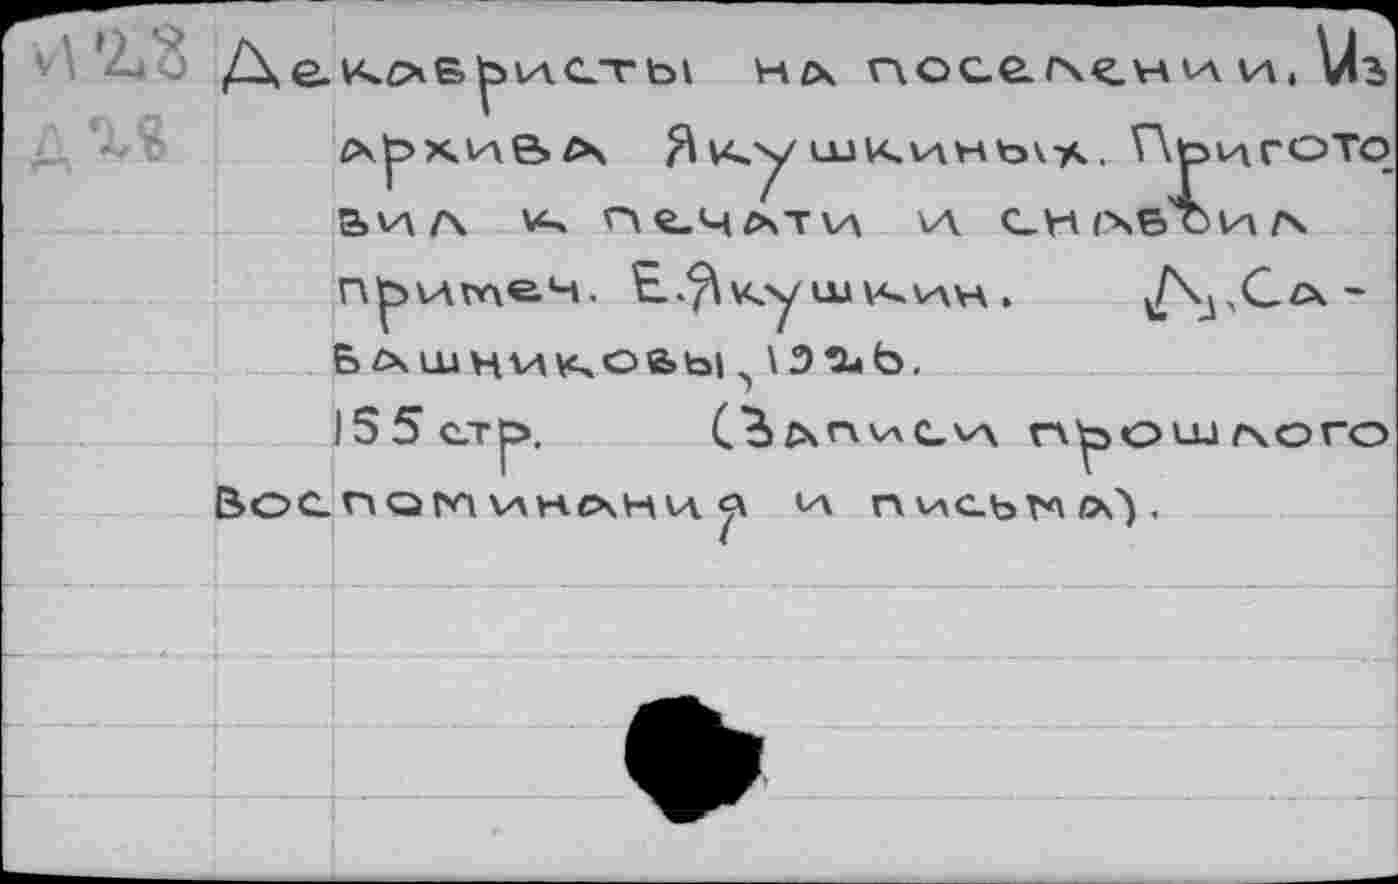 И28 Декабристы на поселении. Из
Д28 архива Якушкиных. Пригото
вил к печати и снабдил
примеч. Е.Якушкин. Л.,Са-
башниковы, 1926.
155 стр. (Записи прошлого
Воспоминания и письма).